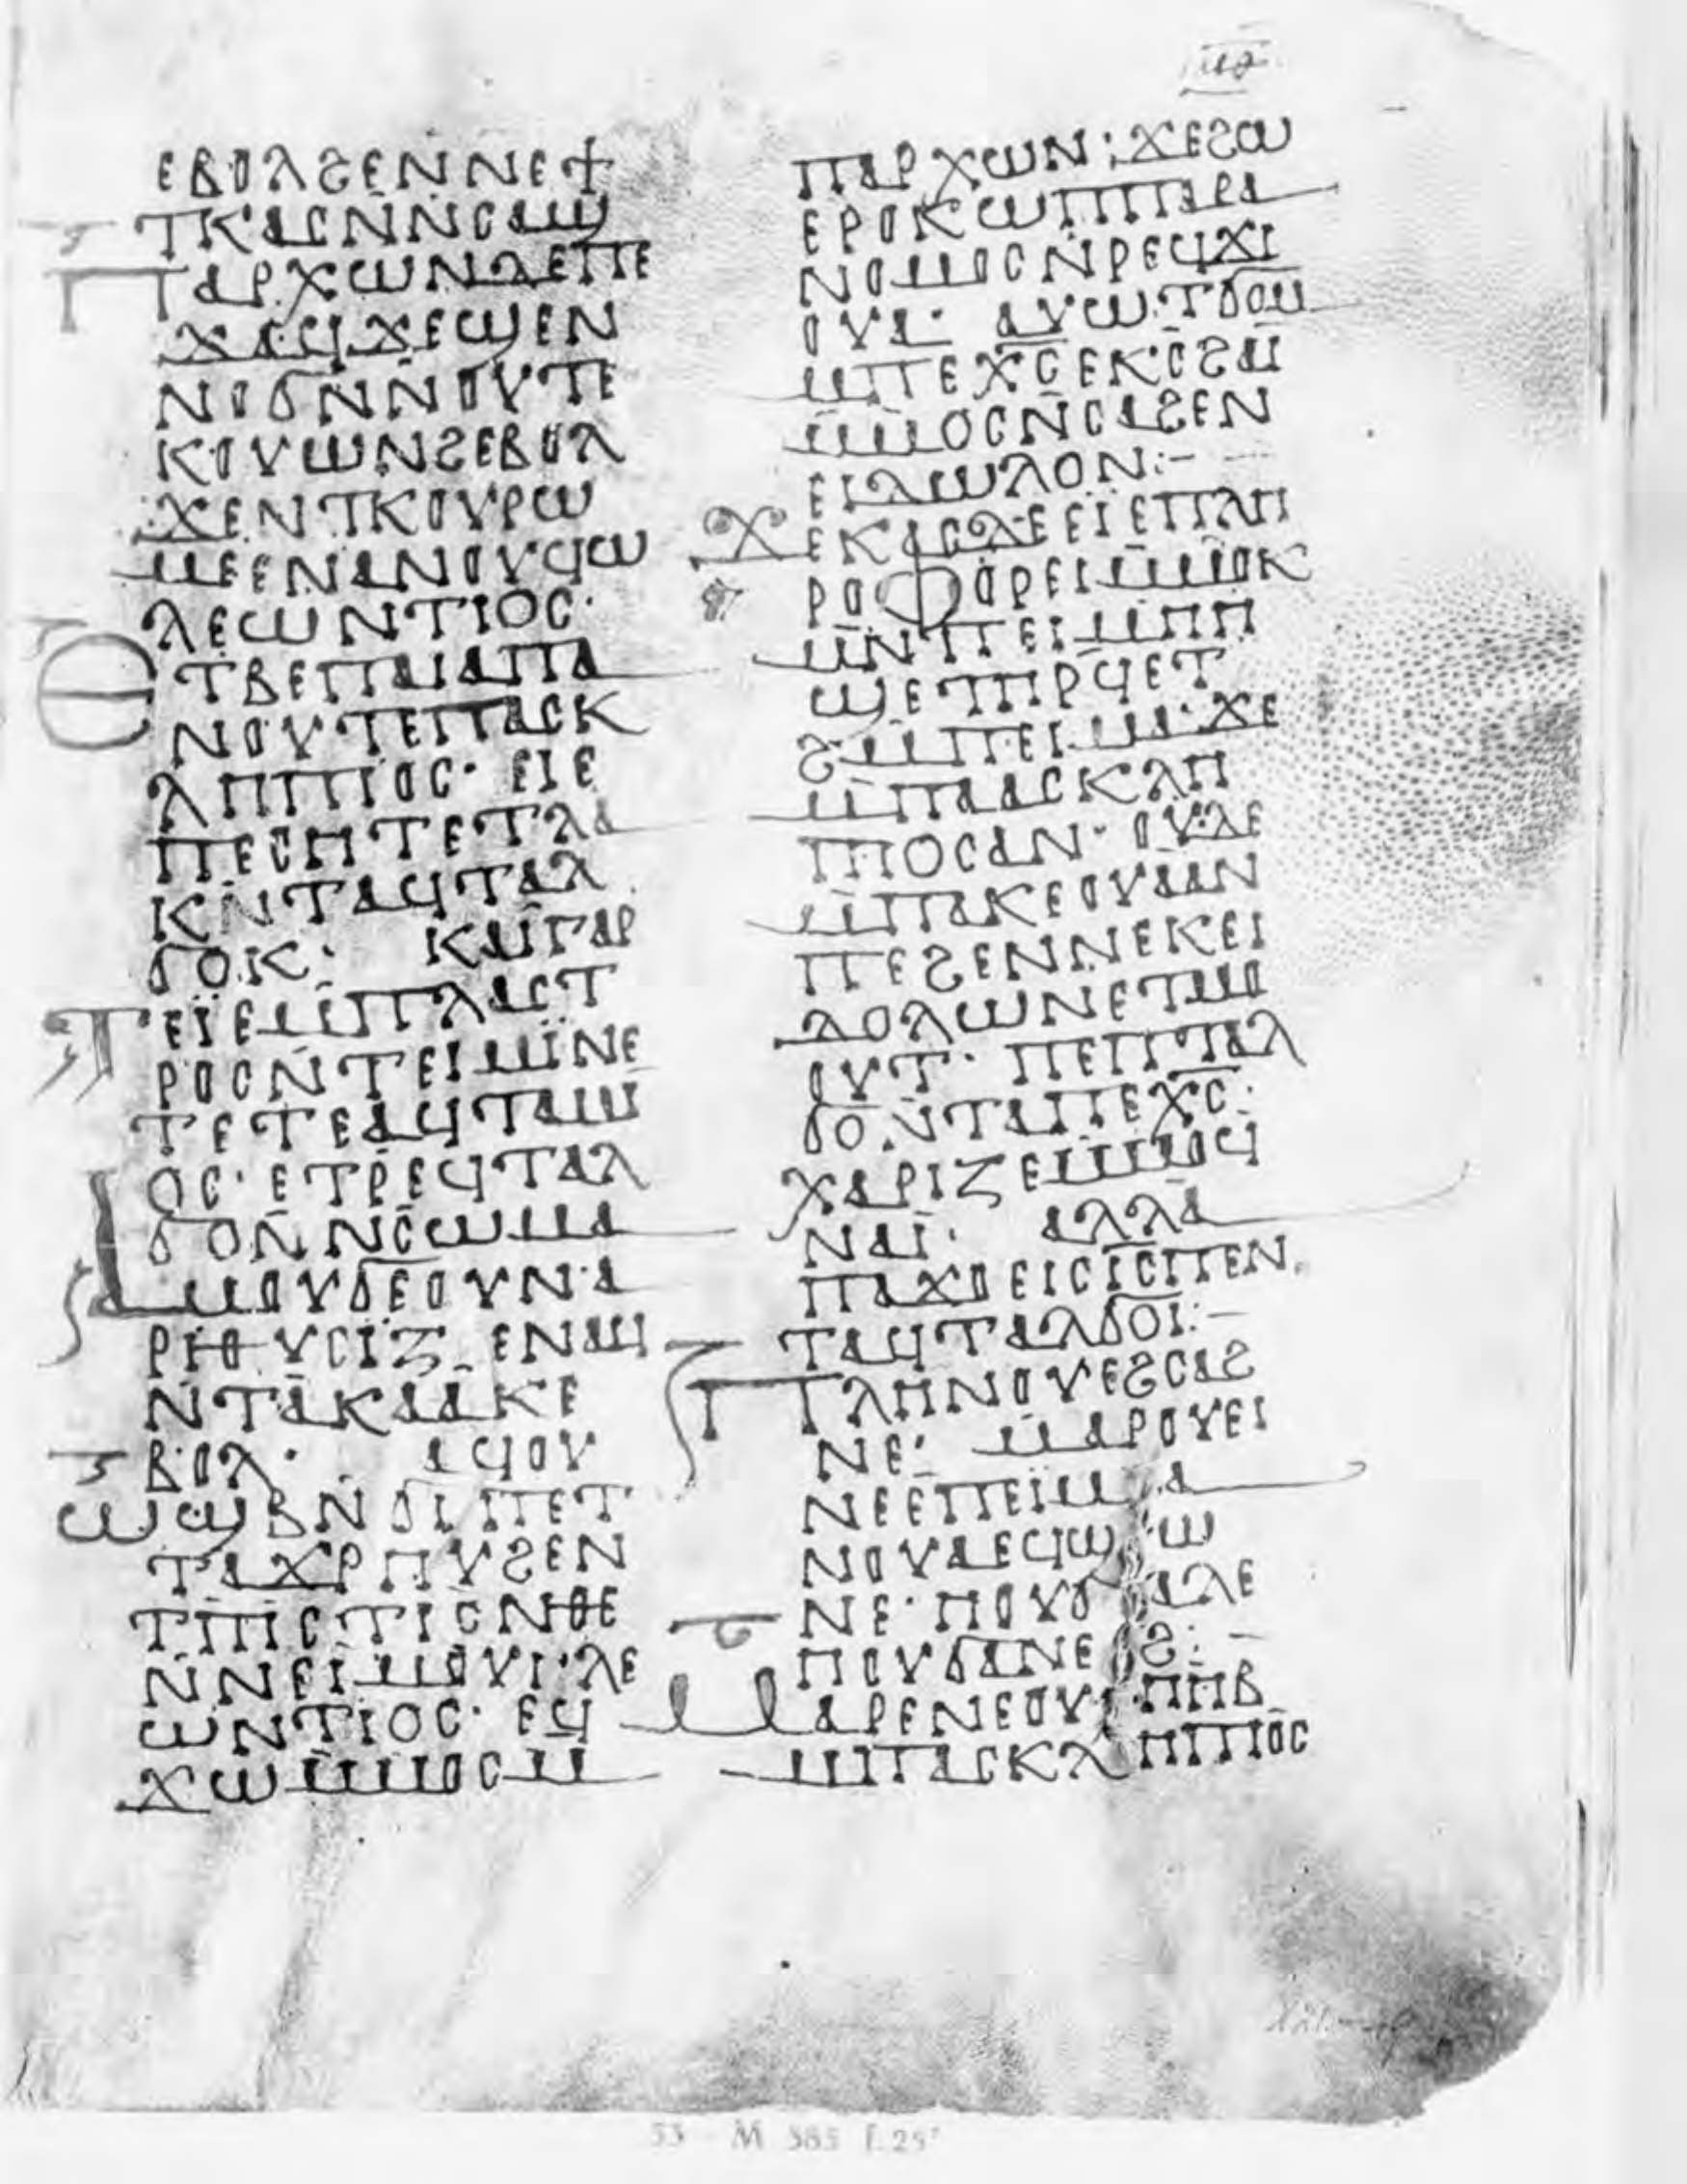 ⲙⲑ
ⲉⲃⲟⲗϩⲉⲛⲛⲉϯ
ⲧⲕⲁⲥⲛⲛⲥⲁϣ
ⲡⲁⲣⲭⲱⲛⲇⲉⲡⲉ
ϫⲁϥϫⲉϣⲉⲛ
ⲛⲟϭⲛⲛⲟⲩⲧⲉ
ⲕⲟⲩⲱⲛϩⲉⲃⲟⲗ
ϫⲉⲛⲧⲕⲟⲩⲣⲱ
ⲙⲉⲉⲛⲁⲛⲟⲩϥⲱ
ⲗⲉⲱⲛⲧⲓⲟⲥ·
ⲉⲧⲃⲉⲡⲁⲓⲁⲡⲁ
ⲛⲟⲩⲧⲉⲡⲁⲥⲕ
ⲗⲏⲡⲓⲟⲥ· ⲉⲓⲉ
ⲡⲉⲥⲏⲧⲉⲧⲗⲁ
ⲕⲛⲧⲁϥⲧⲁⲗ
ϭⲟⲕ: ⲕⲁⲓⲅⲁⲣ
ⲡⲉⲓⲉⲙⲡⲗⲁⲥⲧ
ⲣⲟⲥⲛⲧⲉⲓⲙⲓⲛⲉ
ⲧⲉⲧⲉⲁϥⲧⲁⲙ
ⲟⲥ· ⲉⲧⲣⲉϥⲧⲁⲗ
ϭⲟⲛⲛⲥⲱⲙⲁ
ⲁⲙⲟⲩϭⲉⲟⲩⲛ·ⲁ
ⲣⲓⲑⲩⲥⲓⲁⲍⲉⲛⲁϥ
ⲛⲧⲁⲕⲁⲁⲕⲉ
ⲃⲟⲗ· ⲁϥⲟⲩ
ⲱϣⲃⲛϭⲓⲡⲉⲧ
ⲧⲁϫⲣⲏⲩϩⲉⲛ
ⲧⲡⲓⲥⲧⲓⲥⲛⲑⲉ
ⲛⲛⲉⲓⲙⲟⲩⲓ·ⲗⲉ
ⲱⲛⲧⲓⲟⲥ· ⲉϥ
ϫⲱⲙⲙⲟⲥⲙ
ⲡⲁⲣⲭⲱⲛ: ϫⲉϩⲱ
ⲉⲣⲟⲕⲱⲡⲡⲁⲣⲁ
ⲛⲟⲙⲟⲥⲛⲣⲉϥϫⲓ
ⲟⲩⲁ· ⲁⲩⲱⲧϭⲟⲙ
ⲙⲡⲉⲭⲥⲉⲕ·ⲥϩⲁⲓ
ⲙⲙⲟⲥⲛⲥⲁϩⲉⲛ
ⲉⲓⲇⲱⲗⲟⲛ:-
ϫⲉⲕⲁⲥⲇⲉⲉⲓⲉⲡⲗⲏ
ⲣⲟⲫⲟⲣⲉⲓⲙⲙⲟⲕ
ⲙⲛⲡⲉⲓⲙⲏⲏ
ϣⲉⲧⲏⲣϥⲉⲧ
ϩⲙⲡⲉⲓⲙⲁ·ϫⲉ
ⲙⲡⲁⲁⲥⲕⲗⲏ
ⲡⲓⲟⲥⲁⲛ· ⲟⲩⲇⲉ
ⲙⲡⲁⲕⲉⲟⲩⲁⲁⲛ
ⲡⲉϩⲉⲛⲛⲉⲕⲉⲓ
ⲇⲟⲗⲱⲛⲉⲧⲙⲟ
ⲟⲩⲧ· ⲡⲉⲡⲧⲁⲗ
ϭⲟ·ⲛⲧⲁⲡⲉⲭⲥ·
ⲭⲁⲣⲓⲍⲉⲙⲙⲟϥ
ⲛⲁⲓ· ⲁⲗⲗⲁ
ⲡⲁϫⲟⲉⲓⲥⲓⲥⲡⲉⲛ
ⲧⲁϥⲧⲁⲗϭⲟⲓ:-
ⲡⲗⲏⲛⲟⲩⲉϩⲥⲁϩ
ⲛⲉ· ⲙⲁⲣⲟⲩⲉⲓ
ⲛⲉⲉⲡⲉⲓⲙⲁ
ⲛⲟⲩⲁⲉϥϣⲱ
ⲛⲉ·ⲏⲟⲩϭⲁⲗⲉ
ⲏⲟⲩϭⲁⲛⲉϩ:-
ⲙⲁⲣⲉⲛⲉⲟⲩⲏⲏⲃ
ⲙⲡⲁⲥⲕⲗⲏⲡⲓⲟⲥ
53 M 585 f.25ʳ